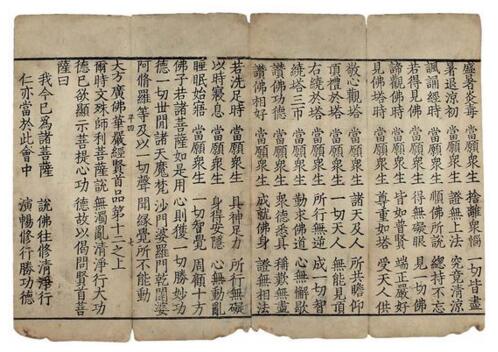 盛暑炎毒　當願衆生　捨離衆惱　一切皆盡
暑退涼初　當願衆生　證無上法　究竟清涼
諷誦經時　當願衆生　順佛所說　總持不忘
若得見佛　當願衆生　得無礙眼　見一切佛
諦觀佛時　當願衆生　皆如普賢　端正嚴好
見佛塔時　當願衆生　尊重如塔　受天人供
敬心觀塔　當願衆生　諸天及人　所共瞻仰
頂禮於塔　當願衆生　一切天人　無能見頂
右繞於塔　當願衆生　所行無逆　成一切智
繞塔三帀　當願衆生　勤求佛道　心無懈歇
讚佛功德　當願衆生　衆德悉具　稱歎無盡
讚佛相好　當願衆生　成就佛身　證無相法
若洗足時　當願衆生　具神足力　所行無礙
以時寢息　當願衆生　身得安隱　心無動亂
睡眠始寤　當願衆生　一切智覺　周顧十方
佛子若諸菩薩如是用心則獲一切勝妙功
德一切世間諸天魔梵沙門婆羅門乾闥婆
阿脩羅等及以一切聲聞緣覺所不能動
平四　七
大方廣佛華嚴經賢首品第十二之上
爾時文殊師利菩薩說無濁亂清淨行大功
德已欲顯示菩提心功德故以偈問賢首菩
薩曰
我今已爲諸菩薩　說佛往修清淨行
仁亦當於此會中　演暢修行勝功德